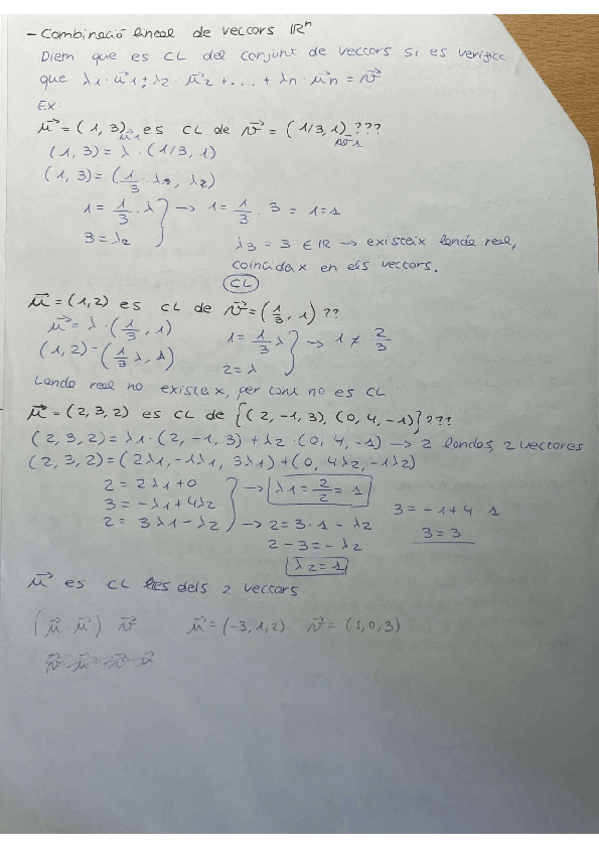 - Combinació lineal de vectors ℝⁿ
Diem que es CL del conjunt de vectors si es verifica
que λ1 · u⃗1 + λ2 · u⃗2 + ... + λn · u⃗n = v⃗
Ex:
u⃗ = (1, 3) es CL de v⃗ = (1/3, 1) ???
(1, 3) = λ · (1/3, 1)
(1, 3) = (1/3 · λ, λ2)
1 = 1/3 · λ → 1 = 1/3 · 3 = 1 = 1
3 = λ2
λ3 = 3 ∈ ℝ → existeix landa real,
coincideix en els vectors.
CL
u⃗ = (1, 2) es CL de v⃗ = (1/3, 1) ??
u⃗ = λ · (1/3, 1)
(1, 2) = (1/3 λ, λ)
1 = 1/3 λ → 1 ≠ 2/3
2 = λ
Landa real no existeix, per tant no es CL
u⃗ = (2, 3, 2) es CL de {(2, -1, 3), (0, 4, -1)} ???
(2, 3, 2) = λ1 · (2, -1, 3) + λ2 · (0, 4, -1) → 2 landas, 2 vectores
(2, 3, 2) = (2λ1, -1λ1, 3λ1) + (0, 4λ2, -1λ2)
2 = 2λ1 + 0 → λ1 = 2/2 = 1
3 = -λ1 + 4λ2
3 = -1 + 4 · 1
2 = 3λ1 - λ2 → 2 = 3 · 1 - λ2
3 = 3
2 - 3 = - λ2
λ2 = 1
u⃗ es CL dels 2 vectors
(u⃗ · u⃗) v⃗ u⃗ = (-3, 1, 2) v⃗ = (5, 0, 3)